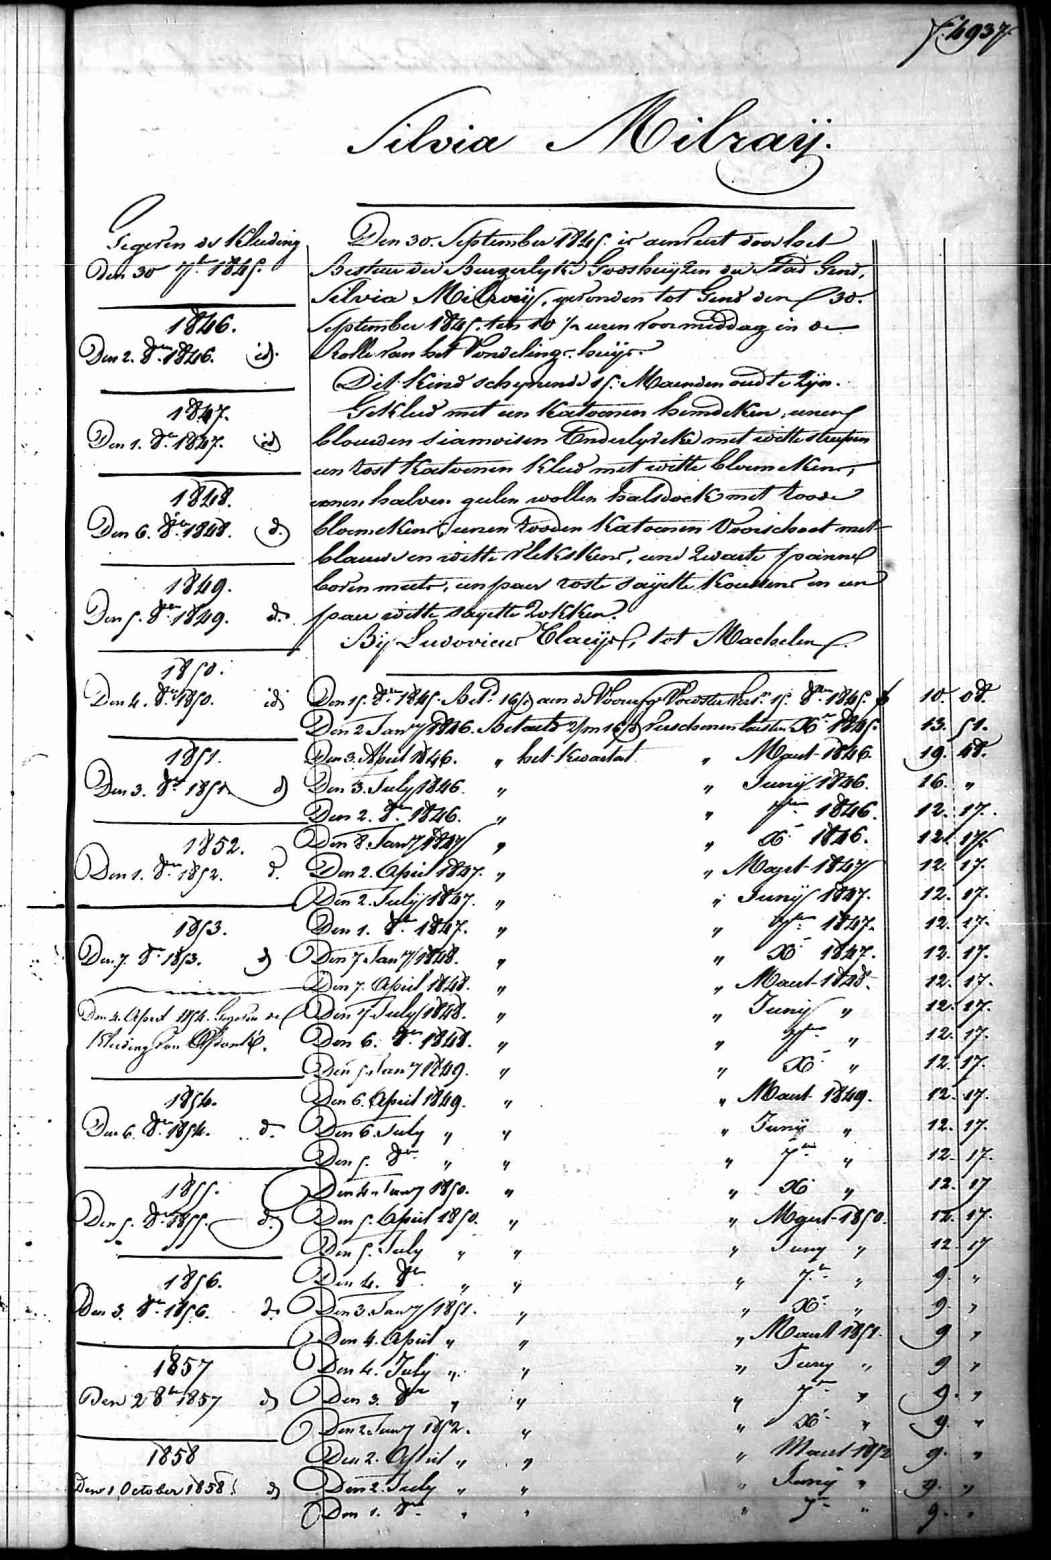 f. 4937
Silvia Milraÿ.
Gegeven de Kleeding
Den 30 7bre 1845.
1846.
Den 2. 8bre 1846. id.
1847.
Den 1. 8bre 1847. id
1848.
Den 6. 8bre 1848. d.
1849.
Den 5. 8bre 1849. d.
1850.
Den 4. 8bre 1850. id
1851.
Den 3. 8bre 1851. d
1852.
Den 1. 8bre 1852. d.
1853.
Den 7. 8bre 1853. d
Den 4. April 1854. Gegeven de
Kleeding van
1854.
Den 6. 8bre 1854. d.
1855.
Den 5. 8bre 1855. d.
1856.
Den 3. 8bre 1856. d.
1857
Den 2 8bre 1857 d
1858
Den 1 October 1858. d
Den 30. September 1845. is aenveert door het
Bestuer der Burgerlyke Godshuyzen der Stad Gend,
Silvia Milraÿ, gevonden tot Gend den 30.
September 1845. ten 10 ½ uren voormiddag in de
Rolle van het Vondelings-huys.
Dit kind schynende 15. Maenden oud te zyn.
Gekleed met een katoenen hemdeken, eenen
blauwen siamoisen onderlyveke met witte streepen
een rost katoenen kleed met witte bloemekens,
eenen halven geelen wollen halsdoek met roode
bloemekens, eenen rooden katoenen voorschoot met
blauwe en witte vlekskens, eene zwarte
boven muts, een paer roste sayette kousens en een
paer witte sayette zokken.
Bij Ludovicus Claeys, tot Machelen
Den 15. 8bre 1845. Bet. aen de Voedster 15. 8bre 1845. 10. 08.
Den 2 Jany 1846. Betaeld verschenen Xbre 1845. 13. 51.
Den 3. April 1846. " het kwartael " Maert 1846. 19. 48.
Den 3. July 1846. " " Junÿ 1846. 16. "
Den 2. 8bre 1846. " " 7bre 1846. 12. 17.
Den 8. Jany 1847 " " Xbre 1846. 12. 17.
Den 2. April 1847. " " Maert 1847 12. 17.
Den 2. Julÿ 1847. " " Junÿ 1847. 12. 17.
Den 1. 8bre 1847. " " 7bre 1847. 12. 17.
Den 7. Jany 1848. " " Xbre 1847. 12. 17.
Den 7. April 1848. " " Maert 1848. 12. 17.
Den 7 July 1848. " " Junÿ " 12. 17.
Den 6. 8bre 1848. " " 7bre " 12. 17.
Den 5. Jany 1849. " " Xbre " 12. 17.
Den 6. April 1849. " " Maert 1849. 12. 17.
Den 6. July " " " Junÿ " 12. 17.
Den 5. 8bre " " " 7bre " 12. 17.
Den 4. Jany 1850. " " Xbre " 12. 17
Den 5. April 1850. " " Maert 1850. 12. 17.
Den 5. July " " " Juny " 12. 17
Den 4. 8bre " " " 7bre " 9. "
Den 3. Jany 1851. " " Xbre " 9. "
Den 4. April " " " Maert 1851. 9 "
Den 4. July " " " Juny " 9 "
Den 3. 8bre " " " 7bre " 9. "
Den 2. Jany 1852. " " Xbre " 9. "
Den 2. April " " " Maert 1852 9. "
Den 2. July " " " Juny " 9. "
Den 1. 8bre " " " 7bre " 9. "